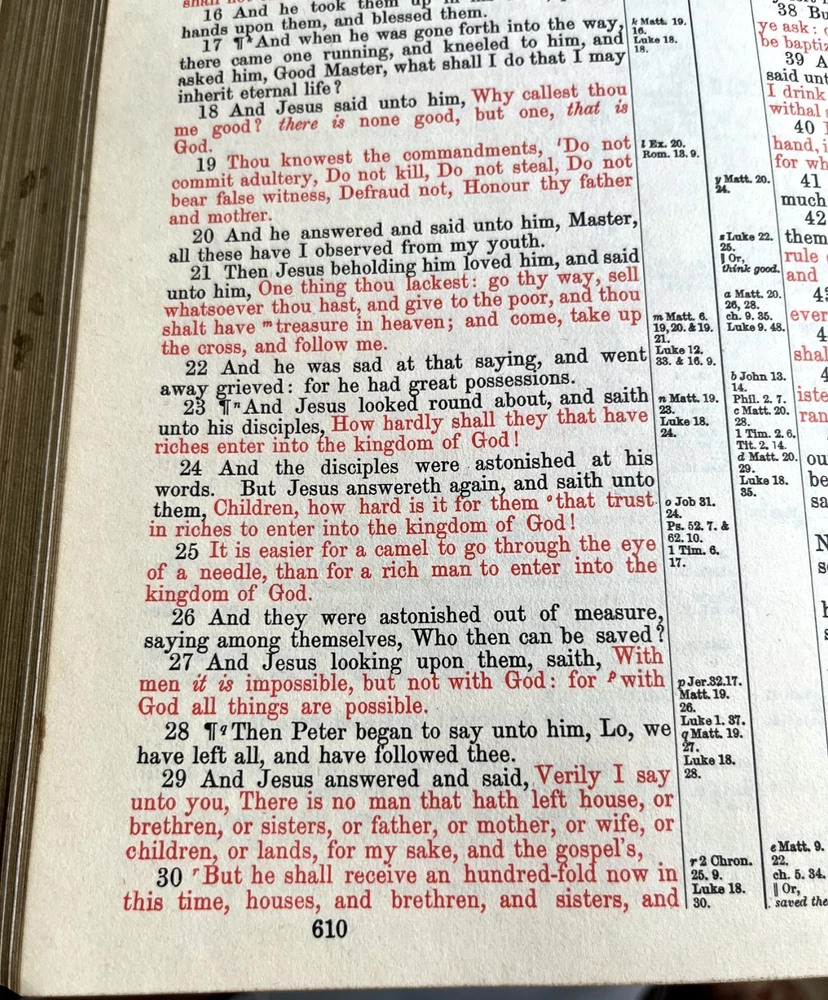 16 And he took them up in
hands upon them, and blessed them.
17 ¶ᵏAnd when he was gone forth into the way,
there came one running, and kneeled to him, and
asked him, Good Master, what shall I do that I may
inherit eternal life?
18 And Jesus said unto him, Why callest thou
me good? there is none good, but one, that is
God.
19 Thou knowest the commandments, ˡDo not
commit adultery, Do not kill, Do not steal, Do not
bear false witness, Defraud not, Honour thy father
and mother.
20 And he answered and said unto him, Master,
all these have I observed from my youth.
21 Then Jesus beholding him loved him, and said
unto him, One thing thou lackest: go thy way, sell
whatsoever thou hast, and give to the poor, and thou
shalt have ᵐtreasure in heaven; and come, take up
the cross, and follow me.
22 And he was sad at that saying, and went
away grieved: for he had great possessions.
23 ¶ⁿAnd Jesus looked round about, and saith
unto his disciples, How hardly shall they that have
riches enter into the kingdom of God!
24 And the disciples were astonished at his
words. But Jesus answereth again, and saith unto
them, Children, how hard is it for them ᵒthat trust
in riches to enter into the kingdom of God!
25 It is easier for a camel to go through the eye
of a needle, than for a rich man to enter into the
kingdom of God.
26 And they were astonished out of measure,
saying among themselves, Who then can be saved?
27 And Jesus looking upon them, saith, With
men it is impossible, but not with God: for ᵖwith
God all things are possible.
28 ¶ᑫThen Peter began to say unto him, Lo, we
have left all, and have followed thee.
29 And Jesus answered and said, Verily I say
unto you, There is no man that hath left house, or
brethren, or sisters, or father, or mother, or wife, or
children, or lands, for my sake, and the gospel's,
30 ʳBut he shall receive an hundred-fold now in
this time, houses, and brethren, and sisters, and
610
k Matt. 19.
16.
Luke 18.
18.
l Ex. 20.
Rom. 13. 9.
m Matt. 6.
19, 20. & 19.
21.
Luke 12.
33. & 16. 9.
n Matt. 19.
23.
Luke 18.
24.
o Job 31.
24.
Ps. 52. 7. &
62. 10.
1 Tim. 6.
17.
p Jer. 32. 17.
Matt. 19.
26.
Luke 1. 37.
q Matt. 19.
27.
Luke 18.
28.
r 2 Chron.
25. 9.
Luke 18.
30.
y Matt. 20.
24.
z Luke 22.
25.
‖ Or,
think good.
a Matt. 20.
26, 28.
ch. 9. 35.
Luke 9. 48.
b John 13.
14.
Phil. 2. 7.
c Matt. 20.
28.
1 Tim. 2. 6.
Tit. 2. 14.
d Matt. 20.
29.
Luke 18.
35.
e Matt. 9.
22.
ch. 5. 34.
‖ Or,
saved the
38 Bu
ye ask:
be baptiz
39 A
said unt
I drink
withal
40
hand, i
for wh
41
much
42
them
rule
and
ever
shal
iste
ran
ou
be
sa